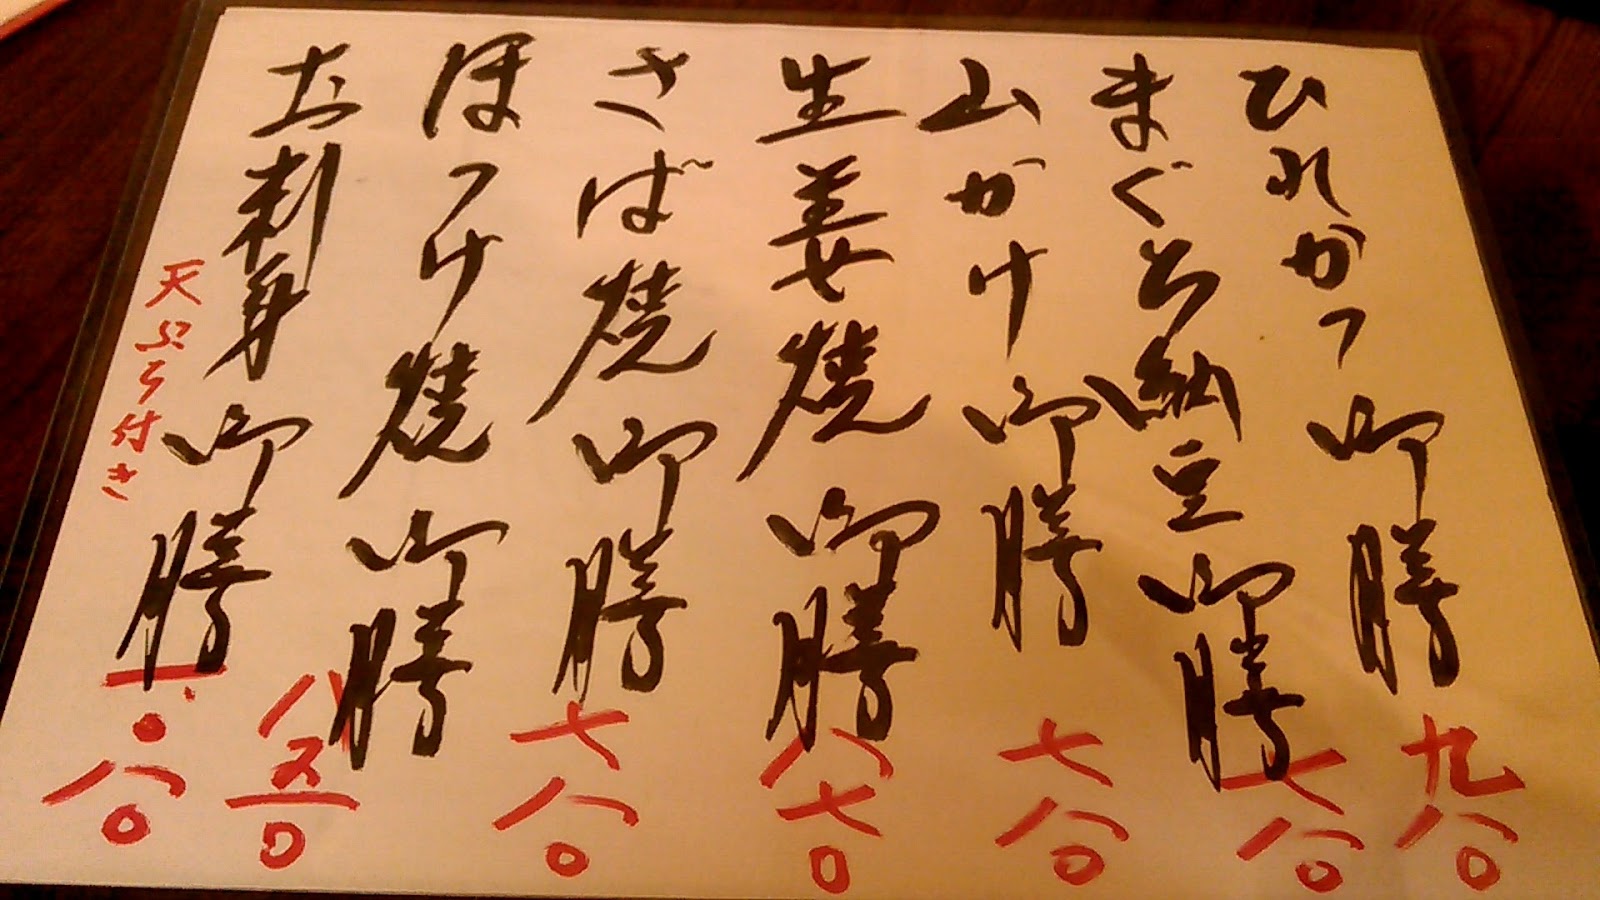 ひれかつ御膳 九八〇
まぐろ納豆御膳 七八〇
山かけ御膳 七八〇
生姜焼御膳 八七〇
さば焼御膳 七八〇
ほっけ焼御膳 八五〇
お刺身御膳 一、〇八〇
天ぷら付き